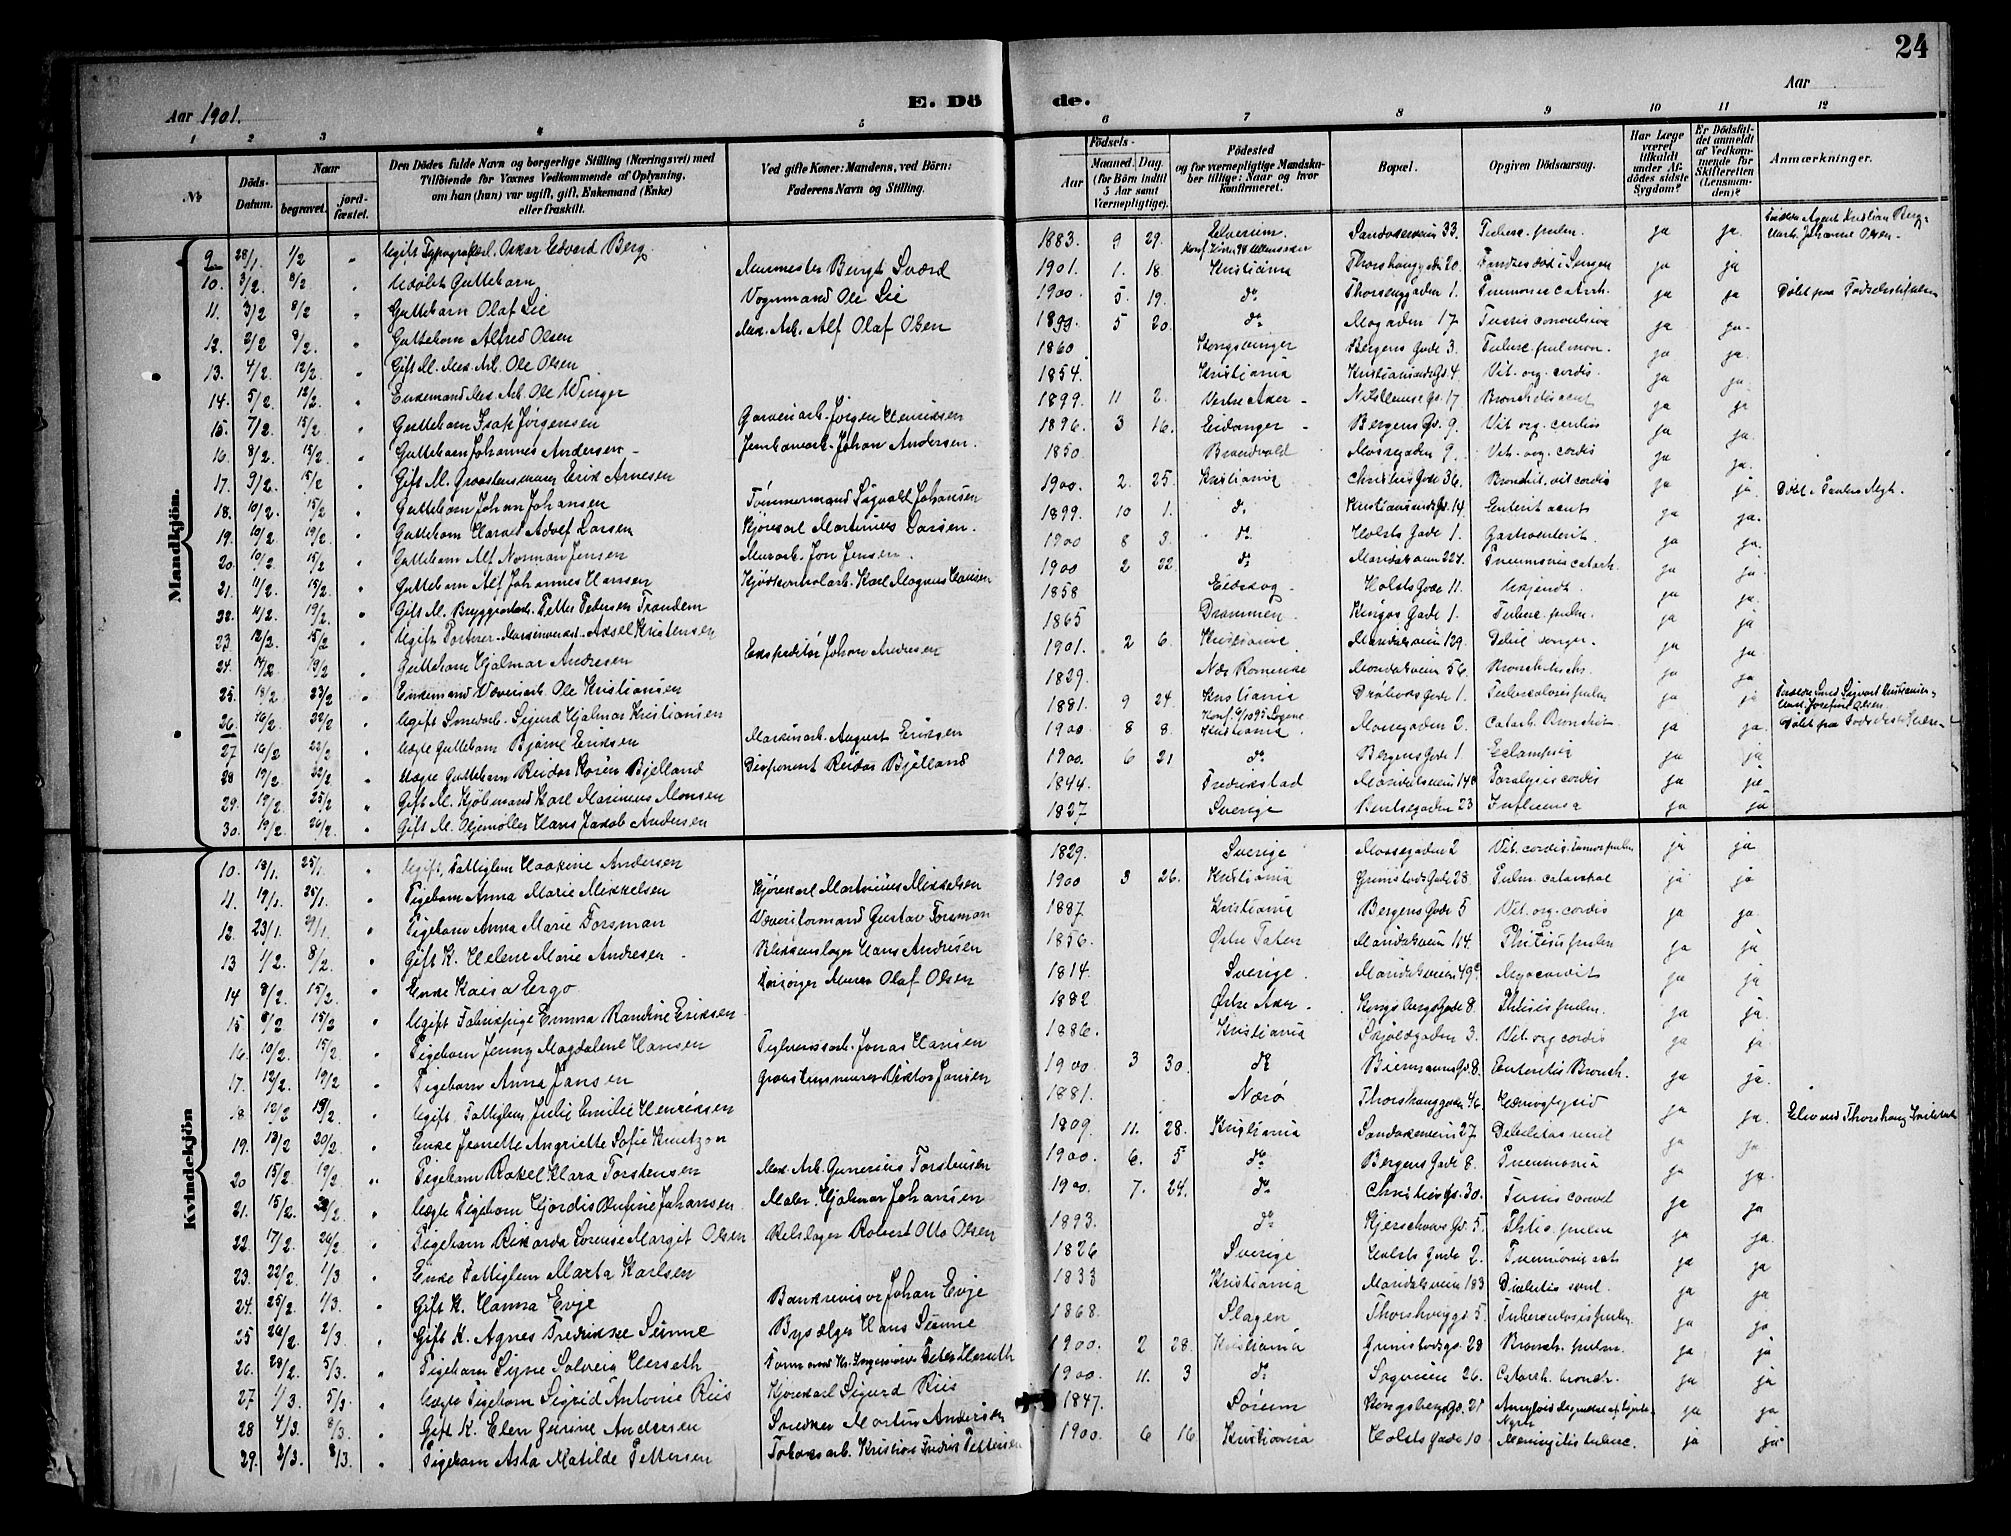 24
Aar 1901.
E. Dö de.
Aar
1 2 3 4 5 6 7 8 9 10 11 12
No
Döds-Datum.
Naar
begravet.
jordfæstet.
Den Dödes fulde Navn og borgerlige Stilling (Næringsvei) med Tilföiende for Voxnes Vedkommende af Oplysning, om han (hun) var ugift, gift, Enkemand (Enke) eller fraskilt.
Ved gifte Koner: Mandens, ved Börn: Faderens Navn og Stilling.
Födsels-
Aar
Maaned. Dag.
(for Börn indtil 5 Aar samt Værnepligtige).
Födested og for værnepligtige Mandskaber tillige: Naar og hvor konfirmeret.
Bopæl.
Opgiven Dödsaarsag.
Har Læge været tilkaldt under Afdödes sidste Sygdom?
Er Dödsfaldet anmeldt af Vedkommende for Skifteretten (Lensmanden)?
Anmærkninger.
Mandkjön.
9 28/1. 1/2 Ugift Typografkarl. Oskar Edvard Berg. 1883. 9 29. Elverum. Sandakerveien 33. Tuberc. pulm. ja ja.
10. 3/2 8/2 Udöbt Guttebarn Murmester Bengt Sværd 1901. 1. 18. Kristiania Thorshauggaden 20. ja ja
11. 3/2 8/2 Guttebarn Olaf Lie Vognmand Ole Lie 1900. 5. 19. do Thorshauggaden 1. Pneumonie catarrh. ja ja
12. 2/2 8/2. Guttebarn Alfred Olsen Mek. Arb. Alf Olaf Olsen 1899. 5 20. do Mogaden 17 Tussis convulsiva ja ja.
13. 4/2. 12/2. Gift M. Mek. Arb. Ole Olsen 1860. Kongsvinger Bergens Gade 3. Tuberc pulmon. ja ja.
14. 5/2. 12/2. Enkemand Mek Arb. Ole Winger 1854. Kristiania Kristiansunds Gd. 4 Vit. org. cordis. ja ja.
15. 7/2. 15/2. Guttebarn Isak Jörgensen Garveriarb. Jörgen Henriksen 1899. 11 2. Vestre Aker 17 Bronchitis acut ja ja
16. 8/2. 15/2. Guttebarn Johannes Andersen Jernbanearb. Johan Andersen. 1896. 3 16. Eidanger Bergens Gd. 9. Vit org. cordis ja ja.
17. 9/2. 15/2 Gift M. Graastensmurer Erik Arnesen 1850. Brandvold Mossegaden 9. Vit. org. cordis ja ja.
18. 10/2. 15/2 Guttebarn Johan Johansen Tömmermand Sigvald Johansen 1900. 2. 25. Kristiania Christies Gade 36. Bronchit. vit cordis ja ja
19. 10/2. 19/2. Guttebarn Harald Adolf Larsen Kjörekarl Martinius Larsen. 1899. 10 1. do Kristiansunds Gd. 14. Enterit acut ja ja.
20. 10/2. 15/2 Guttebarn Alf Norman Jensen Murarb. Jon Jensen. 1900 8 3. do Holsts Gade 1. Gastroenterit. ja ja.
21. 11/2. 15/2. Guttebarn Alf Johannes Hansen Kjödkontrolarb. Karl Magnus Hansen 1900 2 22. do Maridalsveien 224. Pneumonie catarh. ja ja.
22. 4/2. 19/2. Gift M. Bryggeriarb. Petter Pedersen Trandem 1858 Eidskog. Holsts Gade 11. Ukjendt. ja ja.
23. 12/2. 15/2. Ugift Axel Kristensen 1865 Drammen. Kingos Gade 1. Tuberc. pulm. ja ja
24. 14/2 19/2. Guttebarn Hjalmar Andresen Ekspeditör Johan Andresen 1901. 2 6. Kristiania Maridalsveien 129. ja ja.
25. 18/2. 23/2 Enkemand Væveriarb. Ole Kristiansen 1829. Nes Romerike Maridalsveien 56. ja ja
26. 16/2. 22/2. Ugift Smedarb. Sigurd Hjalmar Kristiansen 1881. 9 24. Kristiania Dröbaks Gade 1. Tuberculosis pulm ja ja
27 16/2 22/2. Uægte Guttebarn Bjarne Eriksen Maskinarb. August Eriksen 1900. 8 8. Kristiania. Mossegaden 2. Catarh. Bronchit ja ja.
28 19/2. 22/2. Uægte Guttebarn Reidar Koren Bjelland Disponent Reidar Bjelland 1900. 6 21 do Bergens Gade 1 Eclampsia ja ja
29. 19/2. 25/2 Gift M. Kjöbmand Karl Marinius Monsen 1844. Fredrikstad Maridalsveien 14c Paralysis cordis ja ja
30. 19/2. 26/2. Gift M. Oljemöller Hans Jakob Andersen 1827 Sverige Bentsegaden 23 Influensa ja ja
Kvindekjön
10. 13/1. 25/1. Ugift, Fattiglem Haakine Andersen 1829. Sverige Mossegaden 2 ja ja
11. 19/1. 25/1. Pigebarn Anna Marie Mikkelsen Kjörekarl Martinius Mikkelsen 1900 3 26. Kristiania Grimstads Gade 28. Pulm. catarrhal ja ja
12. 23/1. Pigebarn Anna Marie Forsman Væveriformand Gustav Forsman 1887 Kristiania Bergens Gade 5 Vit. org. cordis ja ja.
13 1/2. 8/2. Gift K. Helene Marie Andresen. Blikkenslager Hans Andresen 1856. Östre Toten Maridalsveien 114. Phtisis pulm ja ja
14 8/2. 15/2. Enke Kaisa Ergo Forsörger Murer Olaf Olsen 1814. Sverige. Maridalsveien 49c. Myocardit ja ja.
15. 8/2 15/2. Ugift Fabrikpige Emma Randine Eriksen. 1882 Östre Aker. Kongsbergs Gade 8. Phtisis pulm. ja ja.
16. 10/2. 15/2. Pigebarn Jenny Magdalene Hansen Teglverksarb. Jonas Hansen 1886. Kristiania Skjoldgaden 3. Vit. org cordis ja ja.
17. 12/2. 19/2 Pigebarn Anna Jansen Graastensmurer Viktor Jansen 1900. 3 30. do Biermanns Gd. 8. Enteritis Bronch. ja ja.
18 12/2 19/2. Ugift Fattiglem Julie Emilie Henriksen 1881. Nærö Thorshauggaden 46. ja ja.
19. 13/2 20/2. Enke Jeanette Angriette Sofie Knutzon 1809. 11. 28. Kristiania Sandakerveien 27 Debilitas senil ja ja.
20 15/2. 19/2. Pigebarn Rakel Klara Torstensen Mek. Arb. Gunerius Torstensen 1900. 6. 5 do Bergens Gade 8. Pneumonia ja ja.
21. 15/2. Uægte Pigebarn Hjördis Rufine Johansen. Maler Hjalmar Johansen 1900. 7. 24. do Christies Gd. 30. Tussis convul ja ja
22. 17/2. 26/2. Pigebarn Rikarda Lovense Margit Olsen Robert Otto Olsen 1893. do Kjerschows Gd. 5. Phtis. pulm ja ja.
23. 22/2. 1/3 Enke Fattiglem Marta Karlsen 1826 Sverige Holsts Gade 2. ja ja
24. 25/2. 1/3. Gift K. Hanna Evje Bankrevisor Johan Evje 1833 Kristiania Maridalsveien 183 ja ja.
25 26/2. 2/3. Gift K. Agnes Fredrikke Sinne Bysælger Hans Sinne 1868. Slagen Thorshauggd. 5. Tuberculosis pulm. ja ja
26. 28/2. 5/3. Pigebarn Signe Solveig Herseth Peter Herseth 1900. 2 28. Kristiania Grimstadsgd. 28 Bronch. pulm. ja ja
27 1/3. 5/3. Uægte Pigebarn Sigrid Antonie Riis Kjörekarl Sigurd Riis 1900. 11. 3 do Sagveien 26. Catarrh. bronch. ja ja
28 4/3. 8/3. Gift K. Elen Gurine Andersen Snedker Martin Andersen 1847. Sörum Kongsbergs Gd. 21 ja ja
29. 3/3. 8/3. Pigebarn Asta Matilde Pettersen Tobaksarb. Kristian Fredrik Pettersen 1900. 6 16 Kristiania Holsts Gade 10 Meningitis tuberc. ja ja